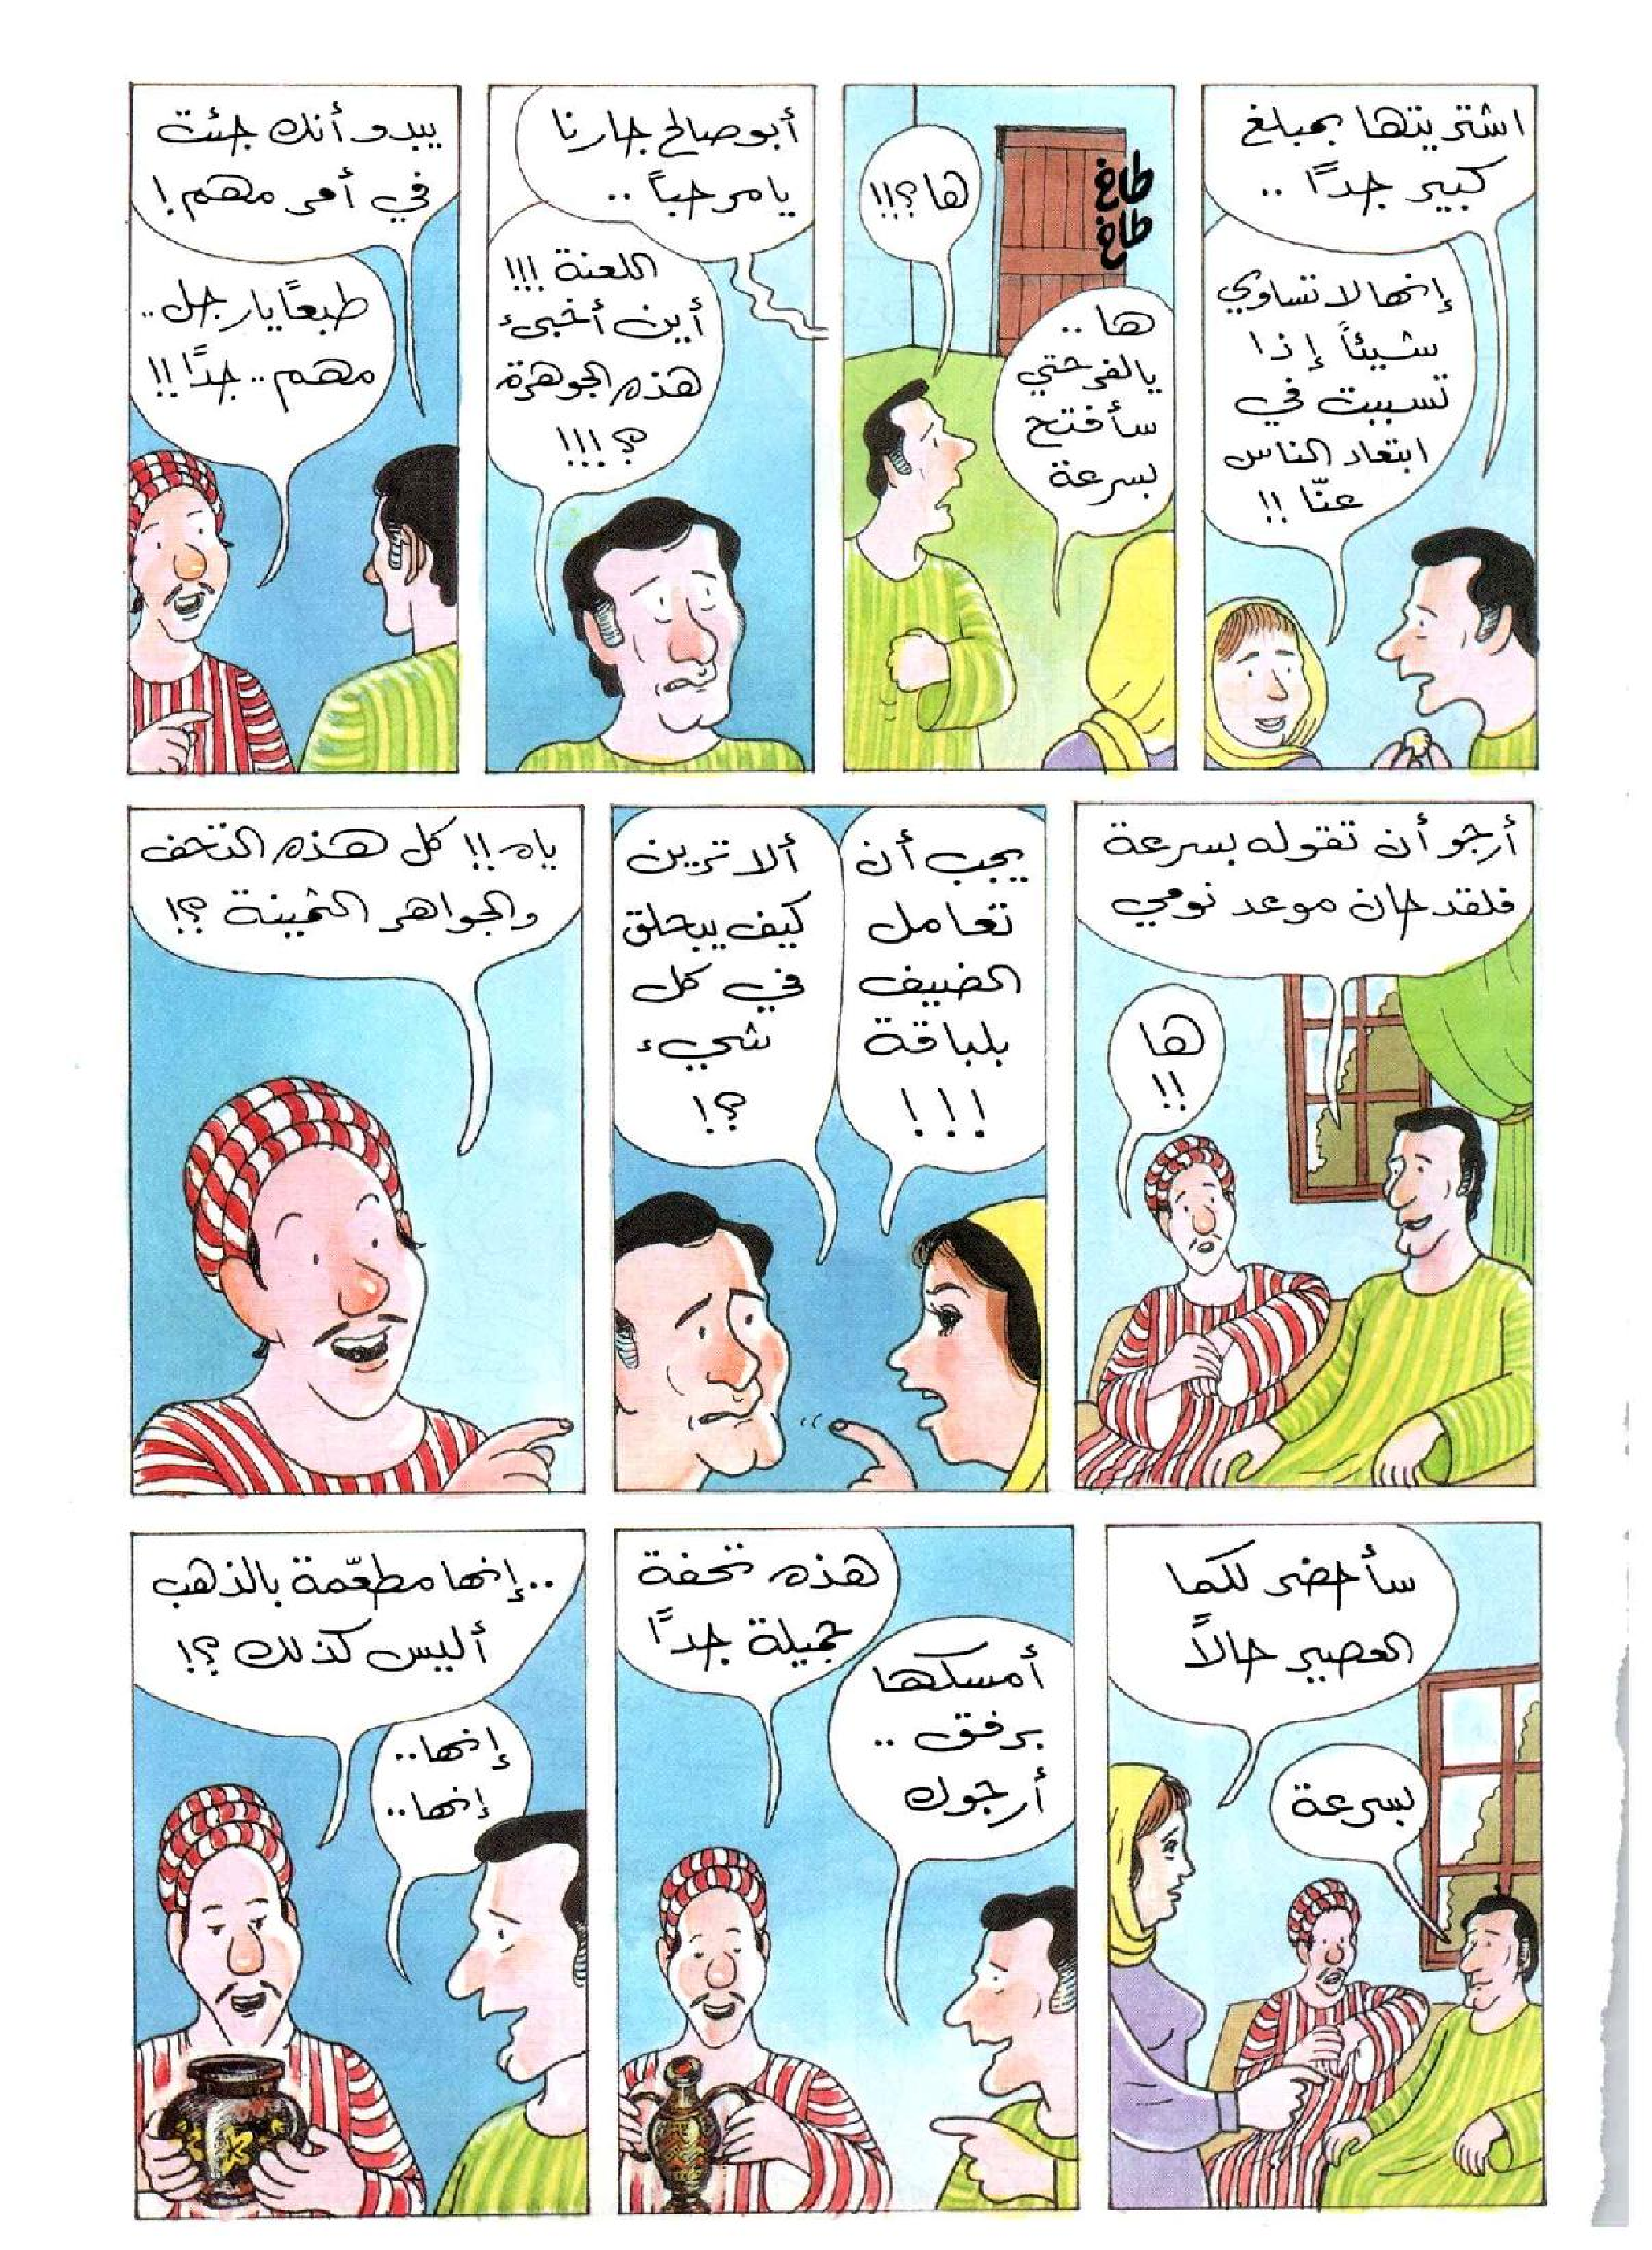 اشتريتها بمبلغ
كبير جدًا ..
إنها لا تساوي
شيئاً إذا
تسببت في
ابتعاد الناس
عنّا !!
طاخ
طاخ
ها؟!!
ها ..
يا لفرحتي
سأفتح
بسرعة
أبو صالح جارنا
يا مرحباً ..
اللعنة !!!
أين أخبىء
هذه الجوهرة
؟!!!
يبدو أنك جئت
في أمر مهم !
طبعًا يا رجل ..
مهم .. جدًا !!
أرجو أن تقوله بسرعة
فلقد حان موعد نومي
ها
!!
يجب أن
تعامل
الضيف
بلباقة
!!!
ألا ترين
كيف يبحلق
في كل
شيء
؟!
ياه !! كل هذه التحف
والجواهر الثمينة ؟!
سأحضر لكما
العصير حالاً
بسرعة
هذه تحفة
جميلة جدًا
أمسكها
برفق ..
أرجوك
.. إنها مطعّمة بالذهب
أليس كذلك ؟!
إنها ..
إنها ..